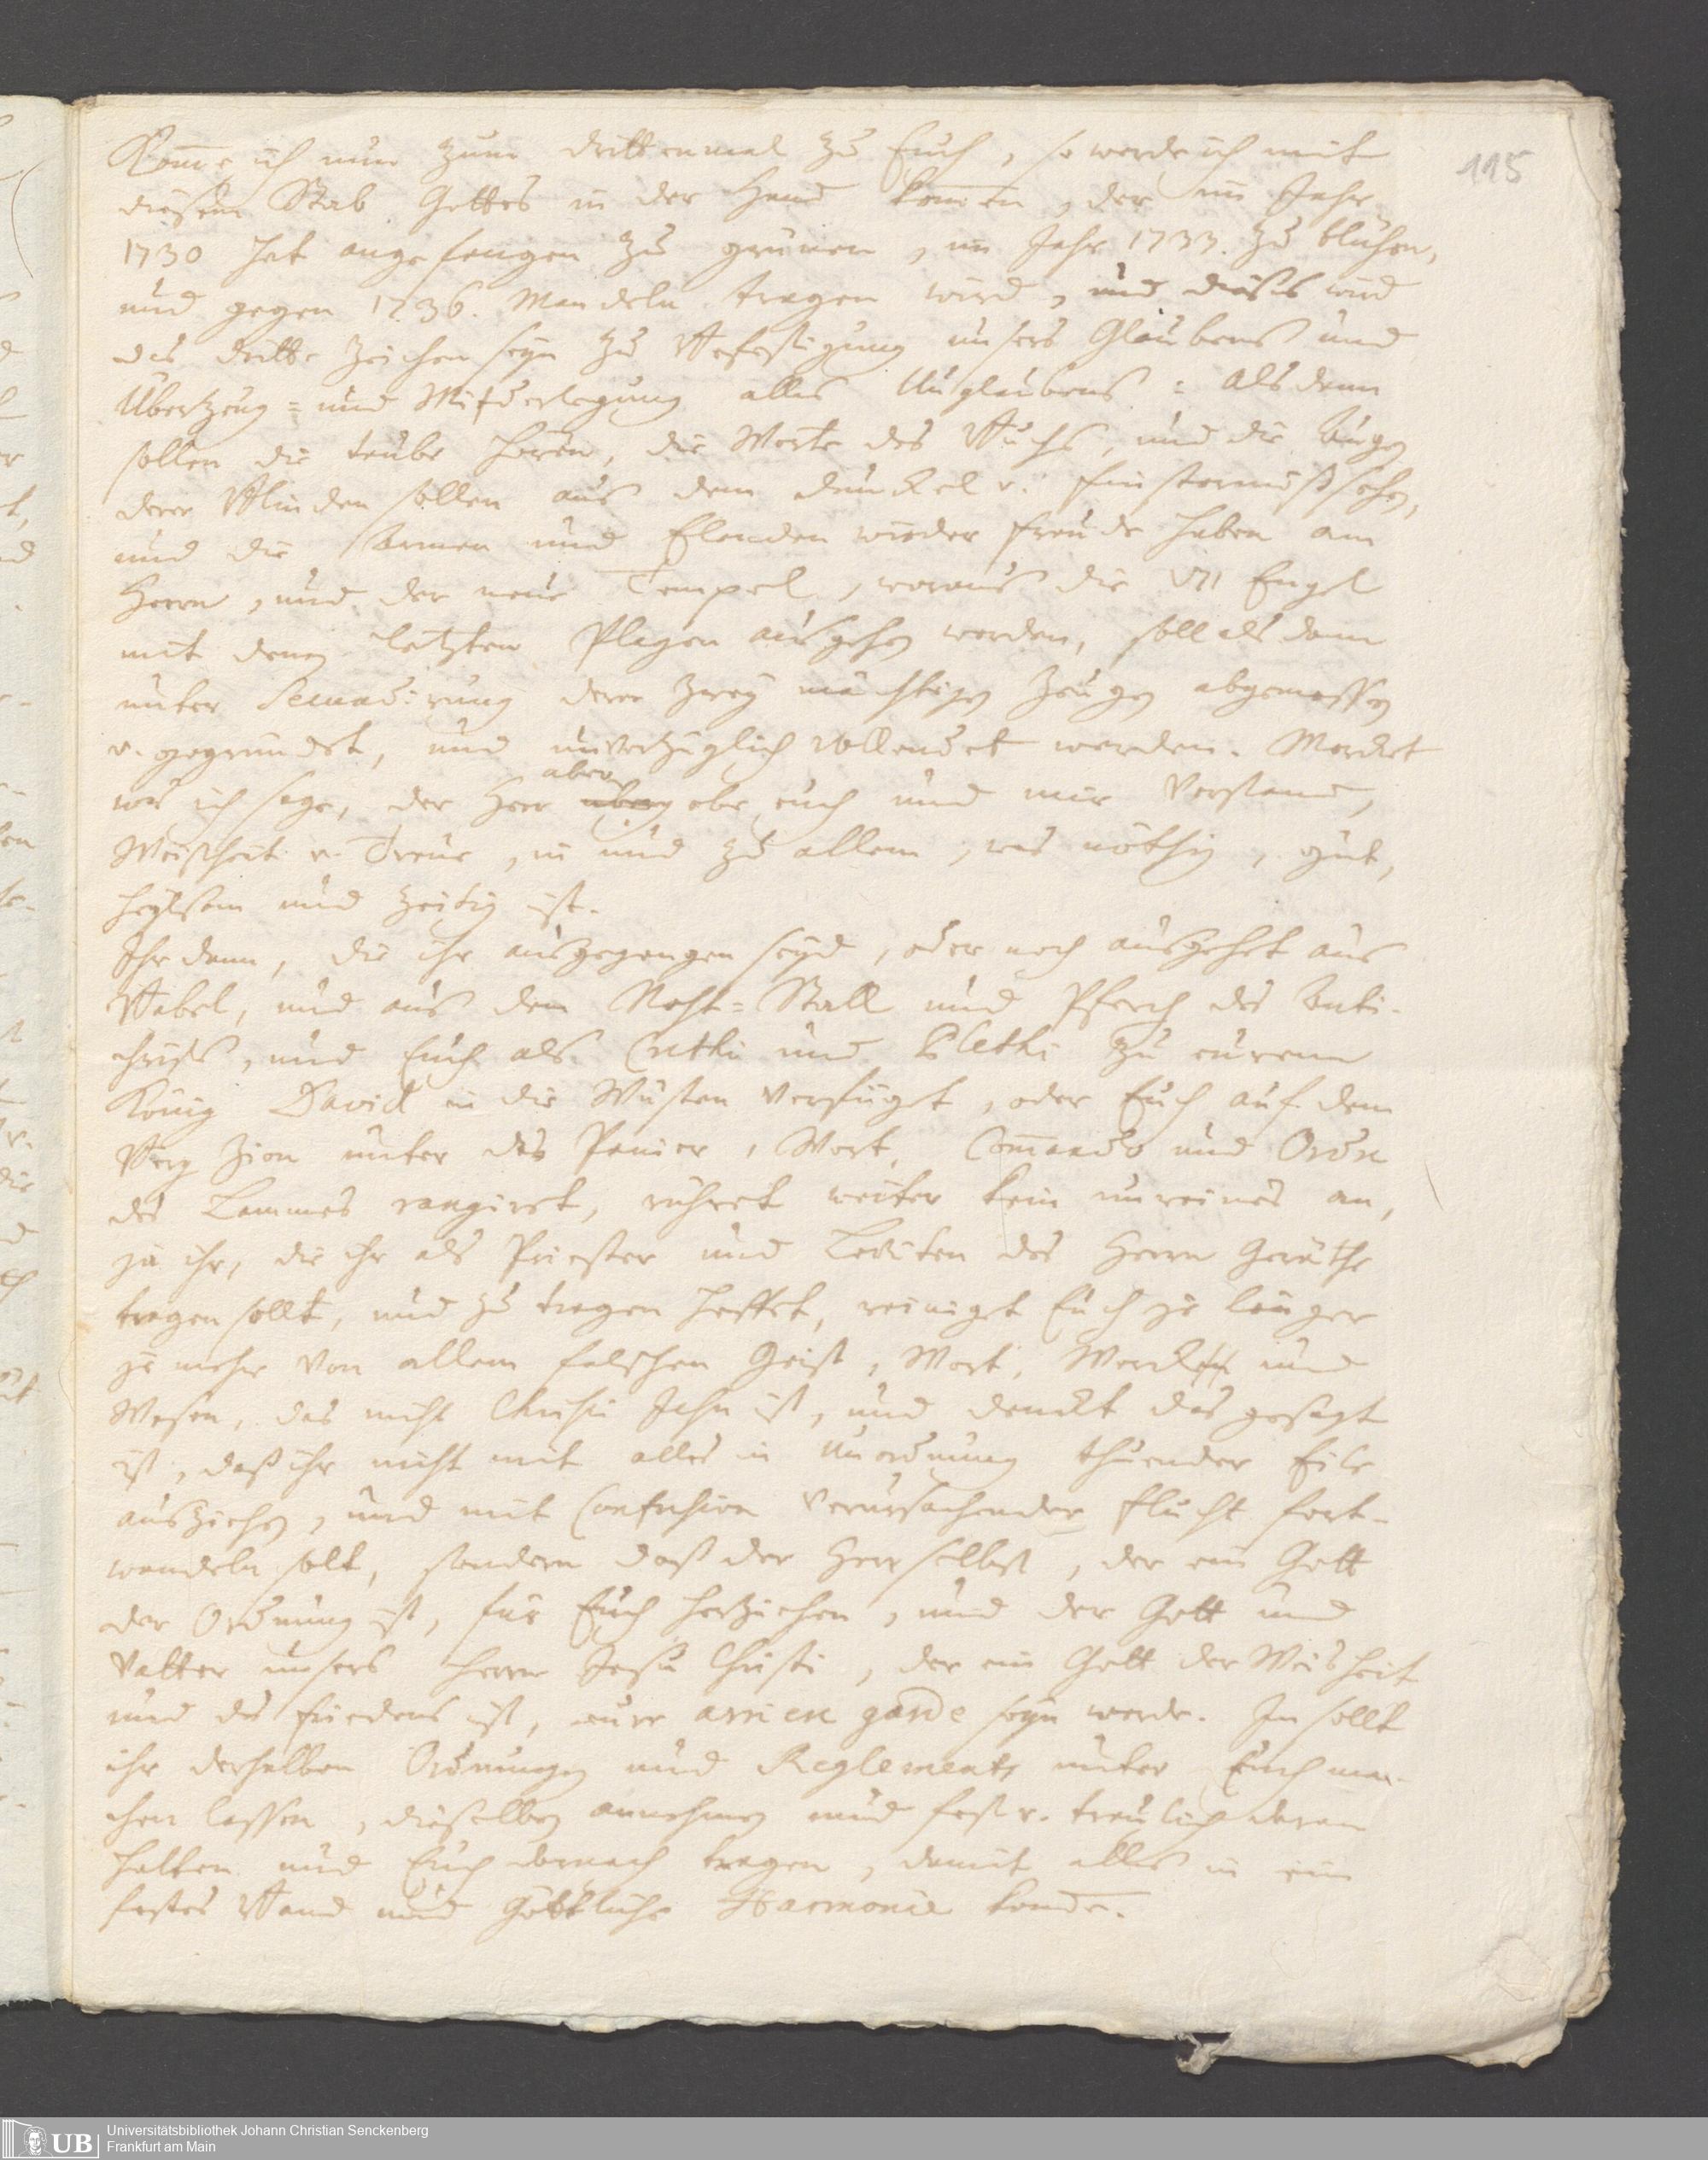 115
Kom̄e ich nun zum drittenmal zu Euch, so werde ich mit
diesem Stab Gottes in der Hand kom̄en, der im Jahr
1730 hat angefangen zu grünen, im Jahr 1733. zu blühen,
und gegen 1736. Mandeln tragen wird, und dieses wird
das dritte Zeichen seyn zu Befestigung unsers Glaubens und
Überzeug= und Niederlegung alles Unglaubens: Alsdann
sollen die taube hören, die Worte des Buchs, und die Augen
derer Blinden sollen aus dem Dunckel v. Finsternüß sehen,
und die Armen und Elenden wieder Freude haben am
Herrn, und der neue Tempel, woraus die VII Engel
mit denen letzten Plagen ausgehen werden, soll alsdann
unter derer zwey mächtigen Zeugen abgemessen
v. gegründet, und unverzüglich vollendet werden. Mercket
was ich sage, der Herr aber gebe euch und mir Verstand,
Weißheit v. Treue, in und zu allem, was nöthig, gut,
heylsam und zeitig ist.
Ihr dann, die ihr ausgegangen seyd, oder noch ausgehet aus
Babel, und aus dem Noht=Stall und Pferch des Anti-
christs, und Euch als Crethi und Plethi zu eurem
König David in die Wüsten verfüget, oder Euch auf dem
Berg Zion unter das Panier, Wort, Com̄ando und Ordre
des Lammes rangiret, rühret weiter kein unreines an,
ja ihr, die ihr als Priester und Leviten des Herrn Geräthe
tragen sollt, und zu tragen hoffet, reiniget Euch je länger
je mehr von allem falschen Geist, Wort, Werck und
Wesen, das nicht Christi Jesu ist, und denckt das gesagt
ist, daß ihr nicht mit alles in Unordnung thuender Eile
ausziehen, und mit Confusion verursachender Flucht fort-
wandeln solt, sondern daß der Herr selbst, der ein Gott
der Ordnung ist, für Euch herziehen, und der Gott und
Vatter unsers Herrn Jesu Christi, der ein Gott der Weisheit
und des Friedens ist, eure arriere garde seyn werde. Im sollt
ihr derhalben Ordnungen und Reglements unter Euch ma-
chen lassen, dieselben annehmen und fest v. treulich daran
halten und Euch darnach tragen, damit alles in ein
festes Band und Göttliche Harmonie kom̄e.
UB Universitätsbibliothek Johann Christian Senckenberg
Frankfurt am Main